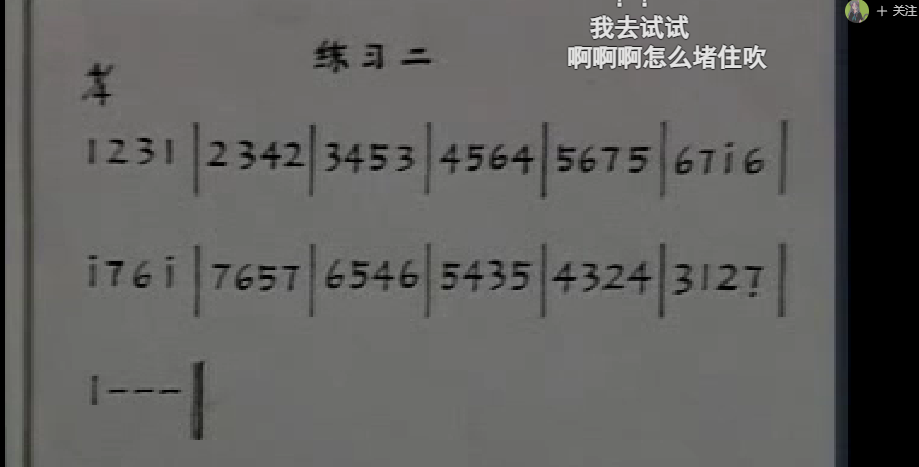 + 关注
我去试试
啊啊啊怎么堵住吹
练习二
4/4
1 2 3 1 | 2 3 4 2 | 3 4 5 3 | 4 5 6 4 | 5 6 7 5 | 6 7 i 6 |
i 7 6 i | 7 6 5 7 | 6 5 4 6 | 5 4 3 5 | 4 3 2 4 | 3 1 2 7̣ |
1 - - - |